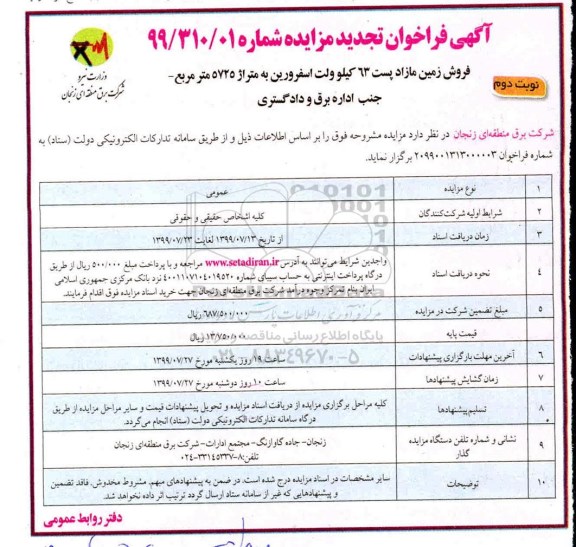 آگهی فراخوان تجدید مزایده شماره ۹۹/۳۱۰/۰۱
وزارت نیرو
شرکت برق منطقه ای زنجان
نوبت دوم
فروش زمین مازاد پست ۶۳ کیلو ولت اسفرورین به متراژ ۵۷۲۵ متر مربع-
جنب اداره برق و دادگستری
شرکت برق منطقه‌ای زنجان در نظر دارد مزایده مشروحه فوق را بر اساس اطلاعات ذیل و از طریق سامانه تدارکات الکترونیکی دولت (ستاد) به
شماره فراخوان ۲۰۹۹۰۰۱۳۱۳۰۰۰۰۰۳ برگزار نماید.
۱ نوع مزایده عمومی
۲ شرایط اولیه شرکت‌کنندگان کلیه اشخاص حقیقی و حقوقی
۳ زمان دریافت اسناد از تاریخ ۱۳۹۹/۰۷/۱۳ لغایت ۱۳۹۹/۰۷/۲۳
۴ نحوه دریافت اسناد واجدین شرایط می‌توانند به آدرس www.setadiran.ir مراجعه و با پرداخت مبلغ ۵۰۰/۰۰۰ ریال از طریق
درگاه پرداخت اینترنتی به حساب سیبای شماره ۴۰۰۱۱۰۷۱۰۴۰۱۹۵۲۰ نزد بانک مرکزی جمهوری اسلامی
ایران بنام تمرکز وجوه درآمد شرکت برق منطقه‌ای زنجان جهت خرید اسناد مزایده فوق اقدام فرمایند.
۵ مبلغ تضمین شرکت در مزایده ۶۸۷/۵۰۰/۰۰۰ ریال
قیمت پایه ۱۳/۷۵۰/۰۰۰/۰۰۰ ریال
۶ آخرین مهلت بارگزاری پیشنهادات ساعت ۱۹ روز یکشنبه مورخ ۱۳۹۹/۰۷/۲۷
۷ زمان گشایش پیشنهادها ساعت ۱۰ روز دوشنبه مورخ ۱۳۹۹/۰۷/۲۷
۸ تسلیم پیشنهادها کلیه مراحل برگزاری مزایده از دریافت اسناد مزایده و تحویل پیشنهادات قیمت و سایر مراحل مزایده از طریق
درگاه سامانه تدارکات الکترونیکی دولت (ستاد) انجام می‌گردد.
۹ نشانی و شماره تلفن دستگاه مزایده گذار زنجان- جاده گاوازنگ- مجتمع ادارات- شرکت برق منطقه‌ای زنجان
تلفن:۸-۳۳۱۴۵۳۳۷-۰۲۴
۱۰ توضیحات سایر مشخصات در اسناد مزایده درج شده است. در ضمن به پیشنهادهای مبهم, مشروط مخدوش, فاقد تضمین
و پیشنهادهایی که غیر از سامانه ستاد ارسال گردد ترتیب اثر داده نخواهد شد.
پایگاه اطلاع رسانی مناقصه
۰۲۱-۸۸۳۴۹۶۷۰-۵
دفتر روابط عمومی